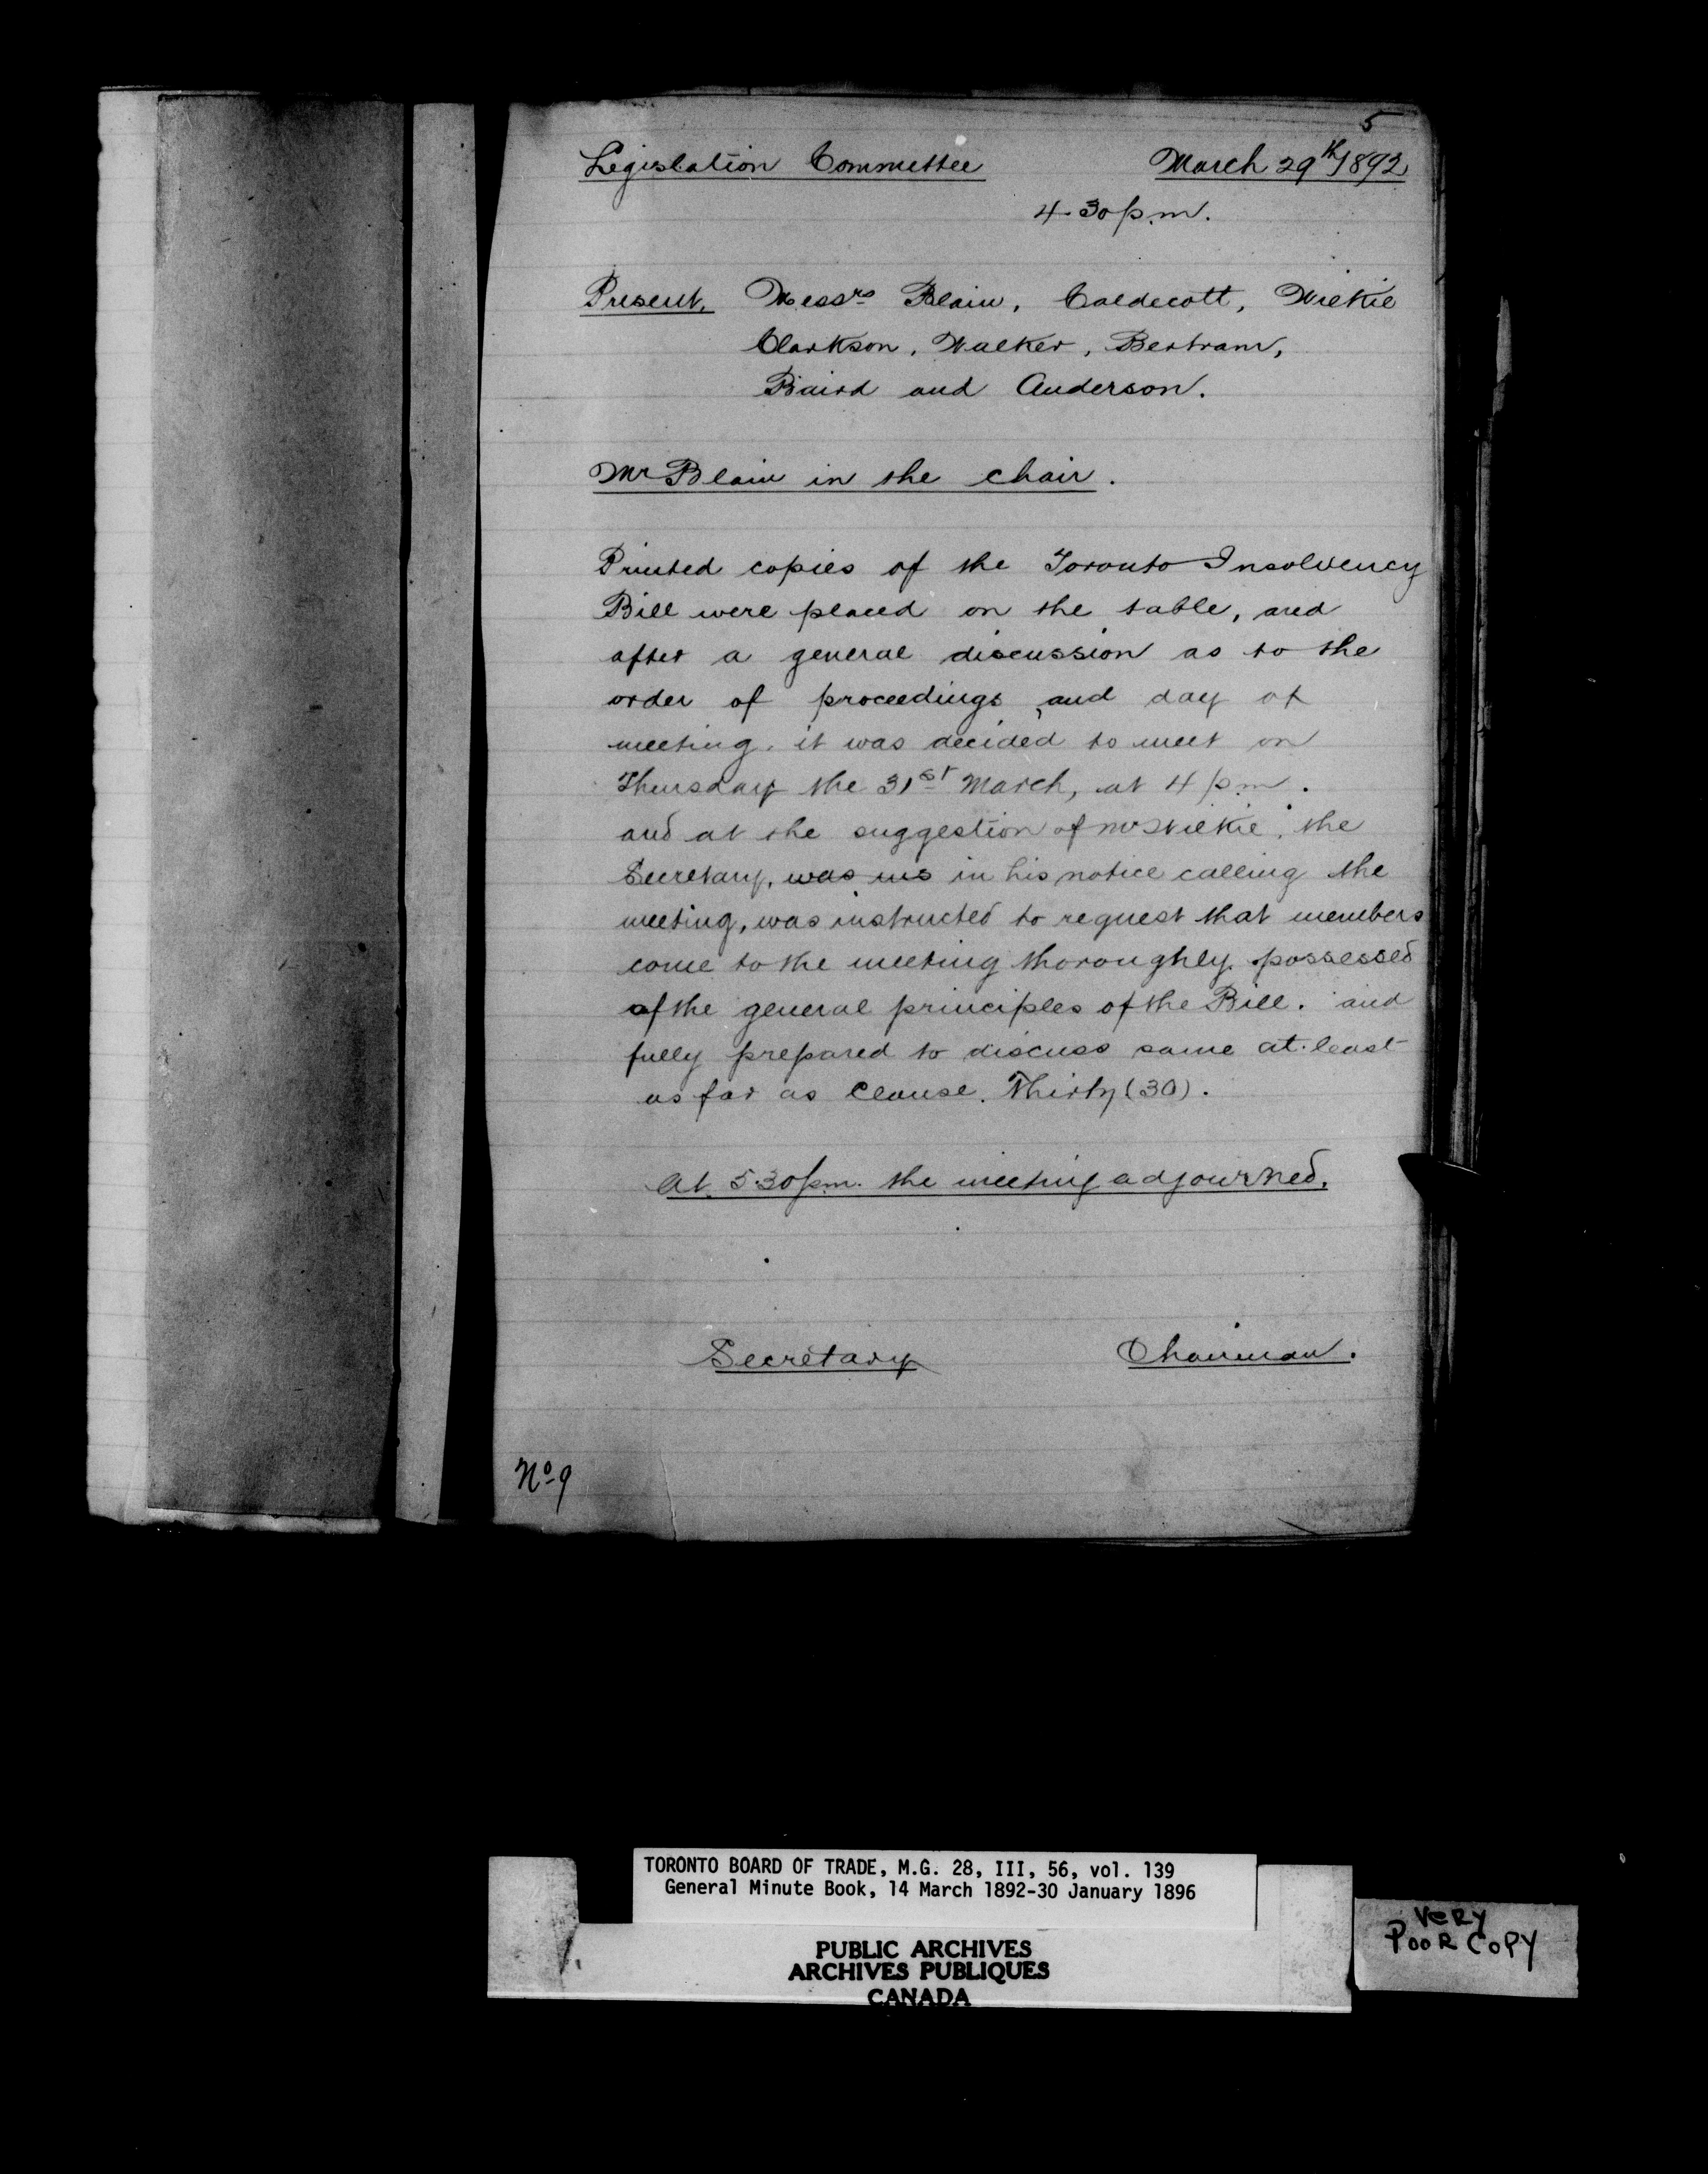 5
Legislation Committee March 29th 1892
4.30 p.m.
Present. Messrs Blain, Caldecott, Wilkie
Clarkson, Walker, Bertram,
Baird and Anderson.
Mr Blain in the chair.
Printed copies of the Toronto Insolvency
Bill were placed on the table, and
after a general discussion as to the
order of proceedings, and day of
meeting, it was decided to meet on
Thursday the 31st March, at 4 p.m.
and at the suggestion of Mr Wilkie, the
Secretary, was ins in his notice calling the
meeting, was instructed to request that members
come to the meeting thoroughly possessed
of the general principles of the Bill. and
fully prepared to discuss same at least
as far as Clause. Thirty (30).
At 5.30 p.m. the meeting adjourned.
Secretary Chairman.
No 9
TORONTO BOARD OF TRADE, M.G. 28, III, 56, vol. 139
General Minute Book, 14 March 1892-30 January 1896
PUBLIC ARCHIVES
ARCHIVES PUBLIQUES
CANADA
VERY
POOR COPY